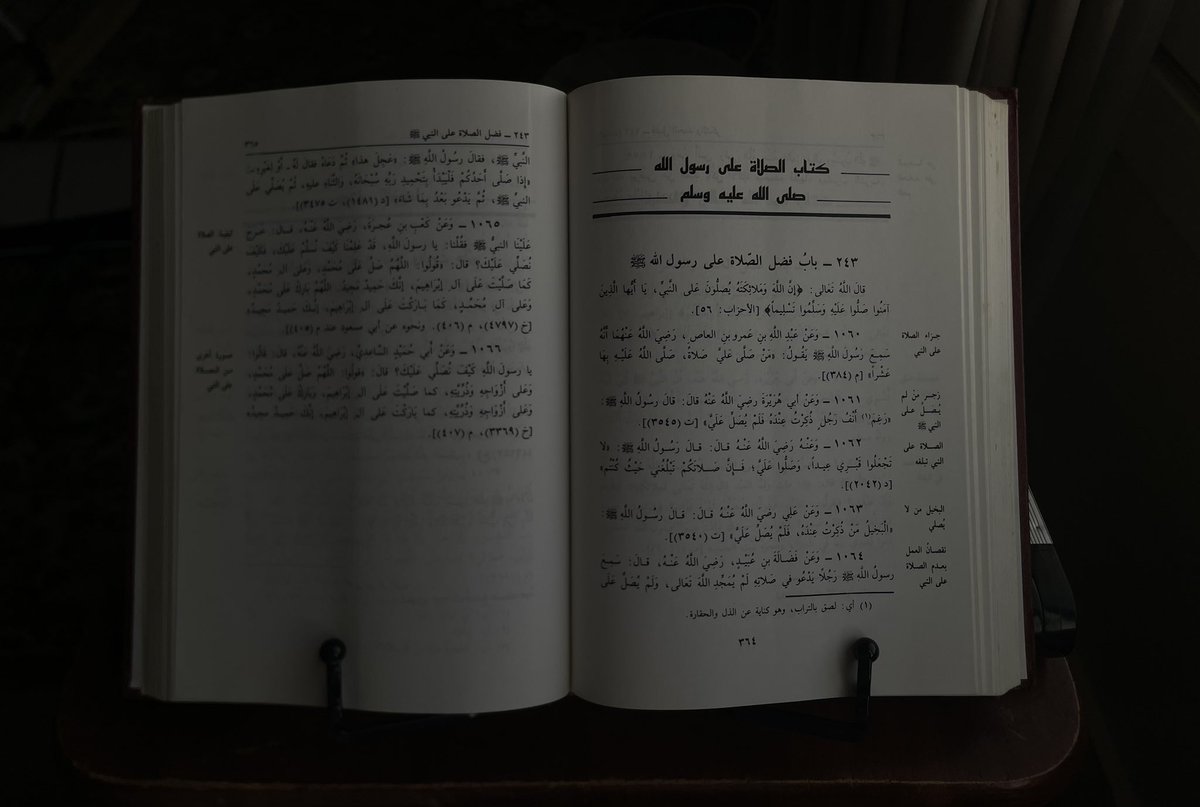 كتاب الصلاة على رسول الله
صلى الله عليه وسلم
٢٤٣ ــ بابُ فضل الصّلاة على رسول الله ﷺ
قالَ اللَّهُ تَعَالى: ﴿إنَّ اللَّهَ وَمَلائِكَتَهُ يُصَلُّونَ عَلى النَّبيِّ، يَا أَيُّها الَّذِينَ
آمَنُوا صَلُّوا عَلَيْهِ وَسَلِّمُوا تَسْلِيماً﴾ [الأحزاب: ٥٦].
جزاء الصلاة
على النبي
١٠٦٠ ــ وَعَنْ عَبْدِ اللَّهِ بن عَمرو بن العاص، رَضِيَ اللَّهُ عَنْهُمَا أنَّهُ
سَمِعَ رَسُولَ اللَّهِ ﷺ يَقُولُ: «مَنْ صَلَّى عَلَيَّ صَلاةً، صَلَّى اللَّهُ عَلَيْهِ بِهَا
عَشْراً» [م (٣٨٤)].
زجر من لم
يُصَلِّ على
النبي ﷺ
١٠٦١ ــ وَعَنْ أبي هُرَيْرَةَ رَضِيَ اللَّهُ عَنْهُ قالَ: قالَ رسُولُ اللَّهِ ﷺ:
«رَغِمَ(١) أنْفُ رَجُلٍ ذُكِرْتُ عِنْدَهُ فَلَمْ يُصَلِّ عَلَيَّ» [ت (٣٥٤٥)].
الصلاة على
النبي تبلغه
١٠٦٢ ــ وَعَنْهُ رَضِيَ اللَّهُ عَنْهُ قالَ: قالَ رَسُولُ اللَّهِ ﷺ: «لا
تَجْعَلُوا قَبْرِي عِيداً، وَصَلُّوا عَلَيَّ؛ فَإنَّ صَلاتَكُمْ تَبْلُغُني حَيْثُ كُنْتُمْ»
[د (٢٠٤٢)].
البخيل من لا
يُصلي
١٠٦٣ ــ وَعَنْ عَلي رَضِيَ اللَّهُ عَنْهُ قالَ: قالَ رسُولُ اللَّهِ ﷺ:
«الْبَخِيلُ مَنْ ذُكِرْتُ عِنْدَهُ، فَلَمْ يُصَلِّ عَلَيَّ» [ت (٣٥٤٠)].
نقصان العمل
بعدم الصلاة
على النبي
١٠٦٤ ــ وَعَنْ فَضَالَةَ بن عُبَيْدٍ، رَضِيَ اللَّهُ عَنْهُ، قالَ: سَمِعَ
رسولُ اللَّهِ ﷺ رَجُلًا يَدْعُو في صَلاتِهِ لَمْ يُمَجِّدِ اللَّهَ تَعَالى، وَلَمْ يُصَلِّ عَلى
(١) أي: لصق بالتراب، وهو كناية عن الذل والحقارة.
٣٦٤
٢٤٣ ــ فضل الصلاة على النبي ﷺ
٣٦٥
النَّبيِّ ﷺ، فقالَ رسُولُ اللَّهِ ﷺ: «عَجِلَ هذَا» ثُمَّ دَعَاهُ فقال لهُ ـ أوْ لِغَيْرِهِ ـ:
«إذَا صَلَّى أحَدُكُمْ فَلْيَبْدَأْ بِتَحْمِيدِ رَبِّهِ سُبْحَانَهُ، والثَّنَاءِ عليه، ثُمَّ يُصَلِّي عَلى
النبيِّ ﷺ، ثُمَّ يَدْعُو بَعْدُ بِمَا شَاءَ» [د (١٤٨١)، ت (٣٤٧٥)].
كيفية الصلاة
على النبي
١٠٦٥ ــ وَعَنْ كَعْبِ بن عُجرَةَ، رَضِيَ اللَّهُ عَنْهُ، قالَ: خَرجَ
عَلَيْنا النبيُّ ﷺ فَقُلْنا: يا رسولَ اللَّهِ، قَدْ عَلِمْنَا كَيْفَ نُسَلِّمُ عَلَيْكَ، فَكَيْفَ
نُصَلِّي عَلَيْكَ؟ قالَ: «قُولُوا: اللَّهُمَّ صَلِّ عَلى مُحَمَّدٍ، وَعَلى آلِ مُحَمَّدٍ،
كَمَا صَلَّيْتَ عَلى آلِ إبْرَاهِيمَ، إنَّكَ حَمِيدٌ مَجِيدٌ. اللَّهُمَّ بَارِكْ عَلى مُحَمَّدٍ،
وَعَلى آلِ مُحَمَّدٍ، كَمَا بَارَكْتَ عَلى آلِ إبْراهِيمَ، إنَّكَ حَمِيدٌ مَجِيدٌ»
[خ (٤٧٩٧)، م (٤٠٦). ونحوه عن أبي مسعود عند م (٤٠٥)].
صورة أخرى
من الصلاة
على النبي
١٠٦٦ ــ وَعَنْ أبي حُمَيْدٍ السَّاعِديِّ، رَضِيَ اللَّهُ عَنْهُ، قالَ: قالُوا:
يا رسولَ اللَّهِ كَيْفَ نُصَلِّي عَلَيْكَ؟ قالَ: «قُولُوا: اللَّهُمَّ صَلِّ عَلى مُحَمَّدٍ،
وَعَلى أزْوَاجِهِ وَذُرِّيَّتِهِ، كما صَلَّيْتَ عَلى آلِ إبْرَاهِيمَ، وَبَارِكْ عَلى مُحَمَّدٍ،
وَعَلى أزْوَاجِهِ وَذُرِّيَّتِهِ، كما بَارَكْتَ عَلى آلِ إبْراهِيمَ، إنَّكَ حَمِيدٌ مَجِيدٌ»
[خ (٣٣٦٩)، م (٤٠٧)].